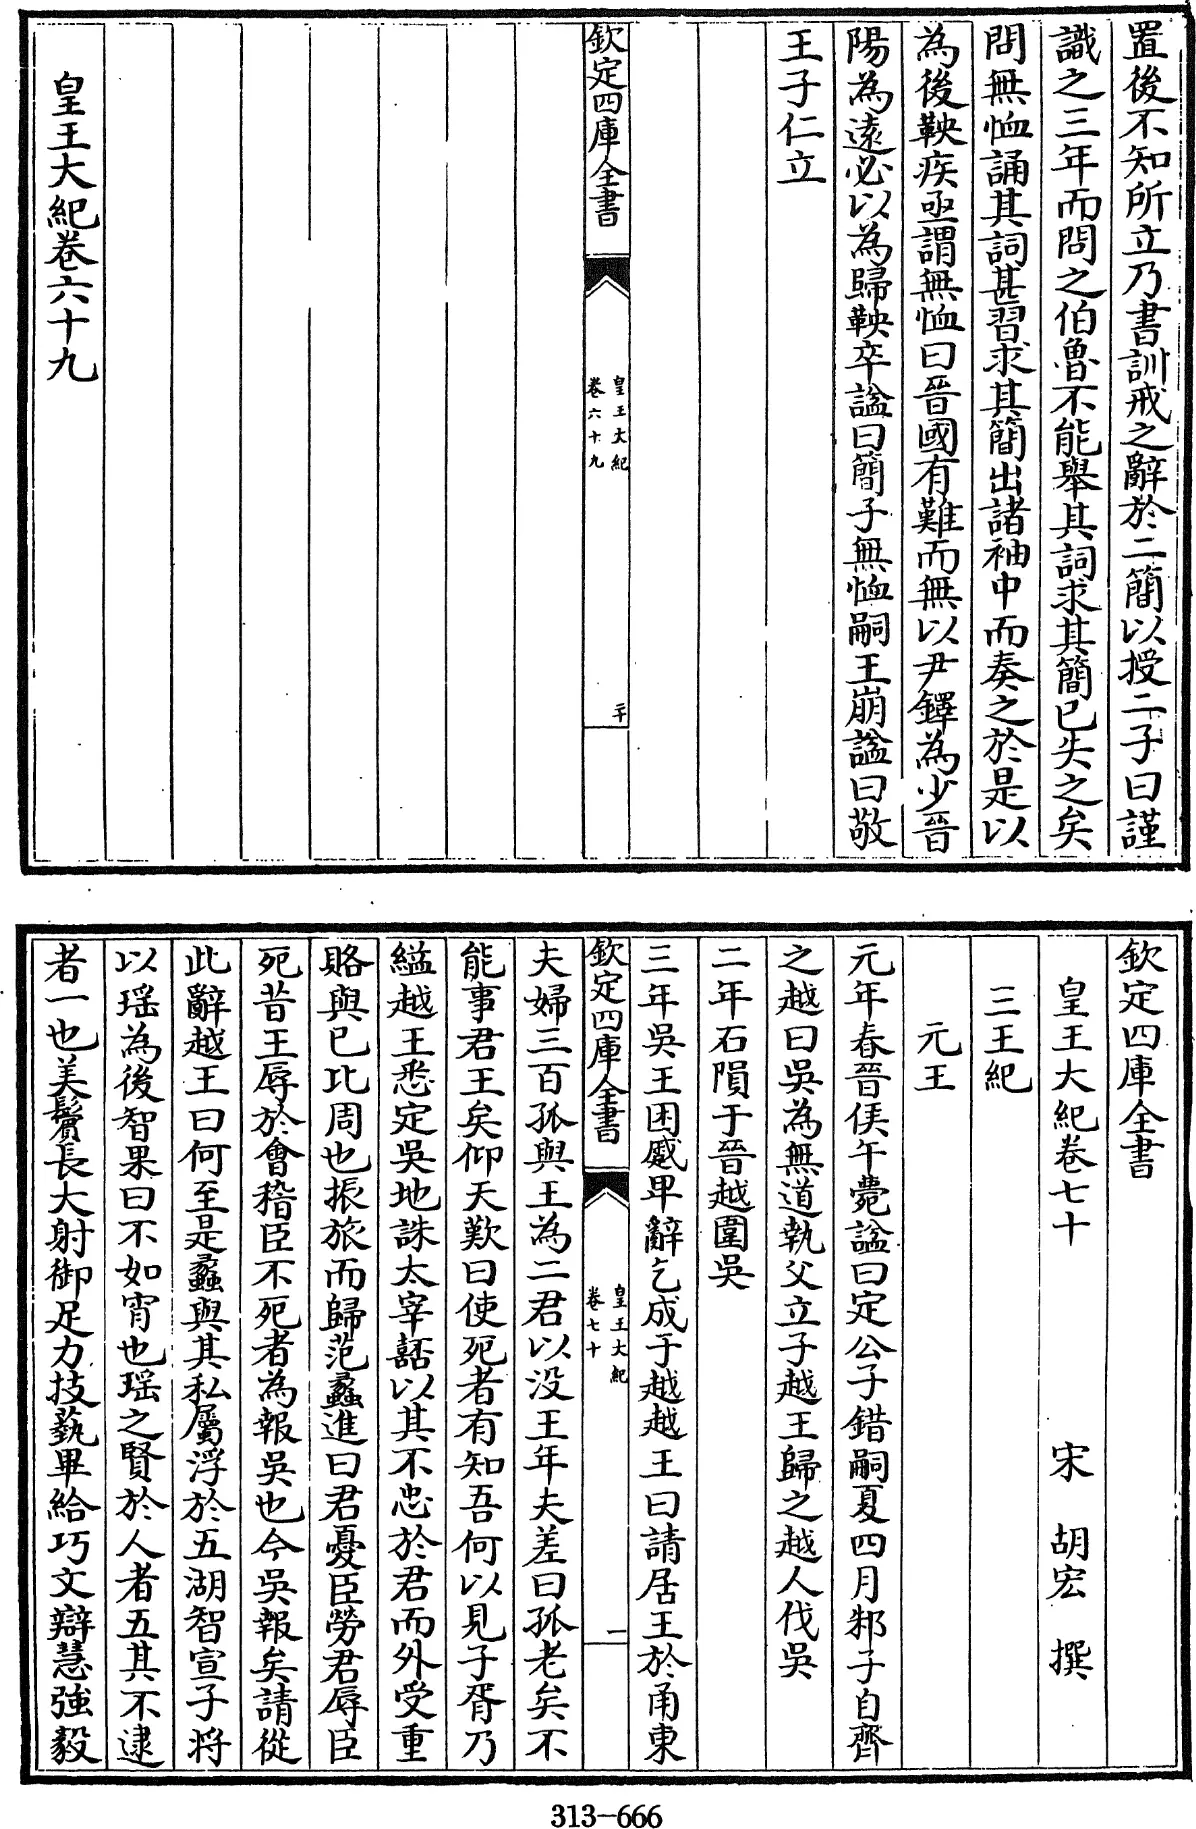 置後不知所立乃書訓戒之辭於二簡以授二子曰謹
識之三年而問之伯魯不能舉其詞求其簡已失之矣
問無恤誦其詞甚習求其簡出諸袖中而奏之於是以
為後鞅疾亟謂無恤曰晉國有難而無以尹鐸為少晉
陽為遠必以為歸鞅卒諡曰簡子無恤嗣王崩諡曰敬
王子仁立
欽定四庫全書
皇王大紀
卷六十九
二十
皇王大紀卷六十九
欽定四庫全書
皇王大紀卷七十
宋 胡宏 撰
三王紀
元王
元年春晉侯午薨諡曰定公子錯嗣夏四月邾子自齊
之越曰吳為無道執父立子越王歸之越人伐吳
二年石隕于晉越圍吳
三年吳王困蹙卑辭乞成于越越王曰請居王於甬東
欽定四庫全書
皇王大紀
卷七十
一
夫婦三百孤與王為二君以没王年夫差曰孤老矣不
能事君王矣仰天歎曰使死者有知吾何以見子胥乃
縊越王悉定吳地誅太宰嚭以其不忠於君而外受重
賂與已比周也振旅而歸范蠡進曰君憂臣勞君辱臣
死昔王辱於會稽臣不死者為報吳也今吳報矣請從
此辭越王曰何至是蠡與其私屬浮於五湖智宣子將
以瑶為後智果曰不如宵也瑶之賢於人者五其不逮
者一也美鬢長大射御足力技藝畢給巧文辯慧強毅
313-666